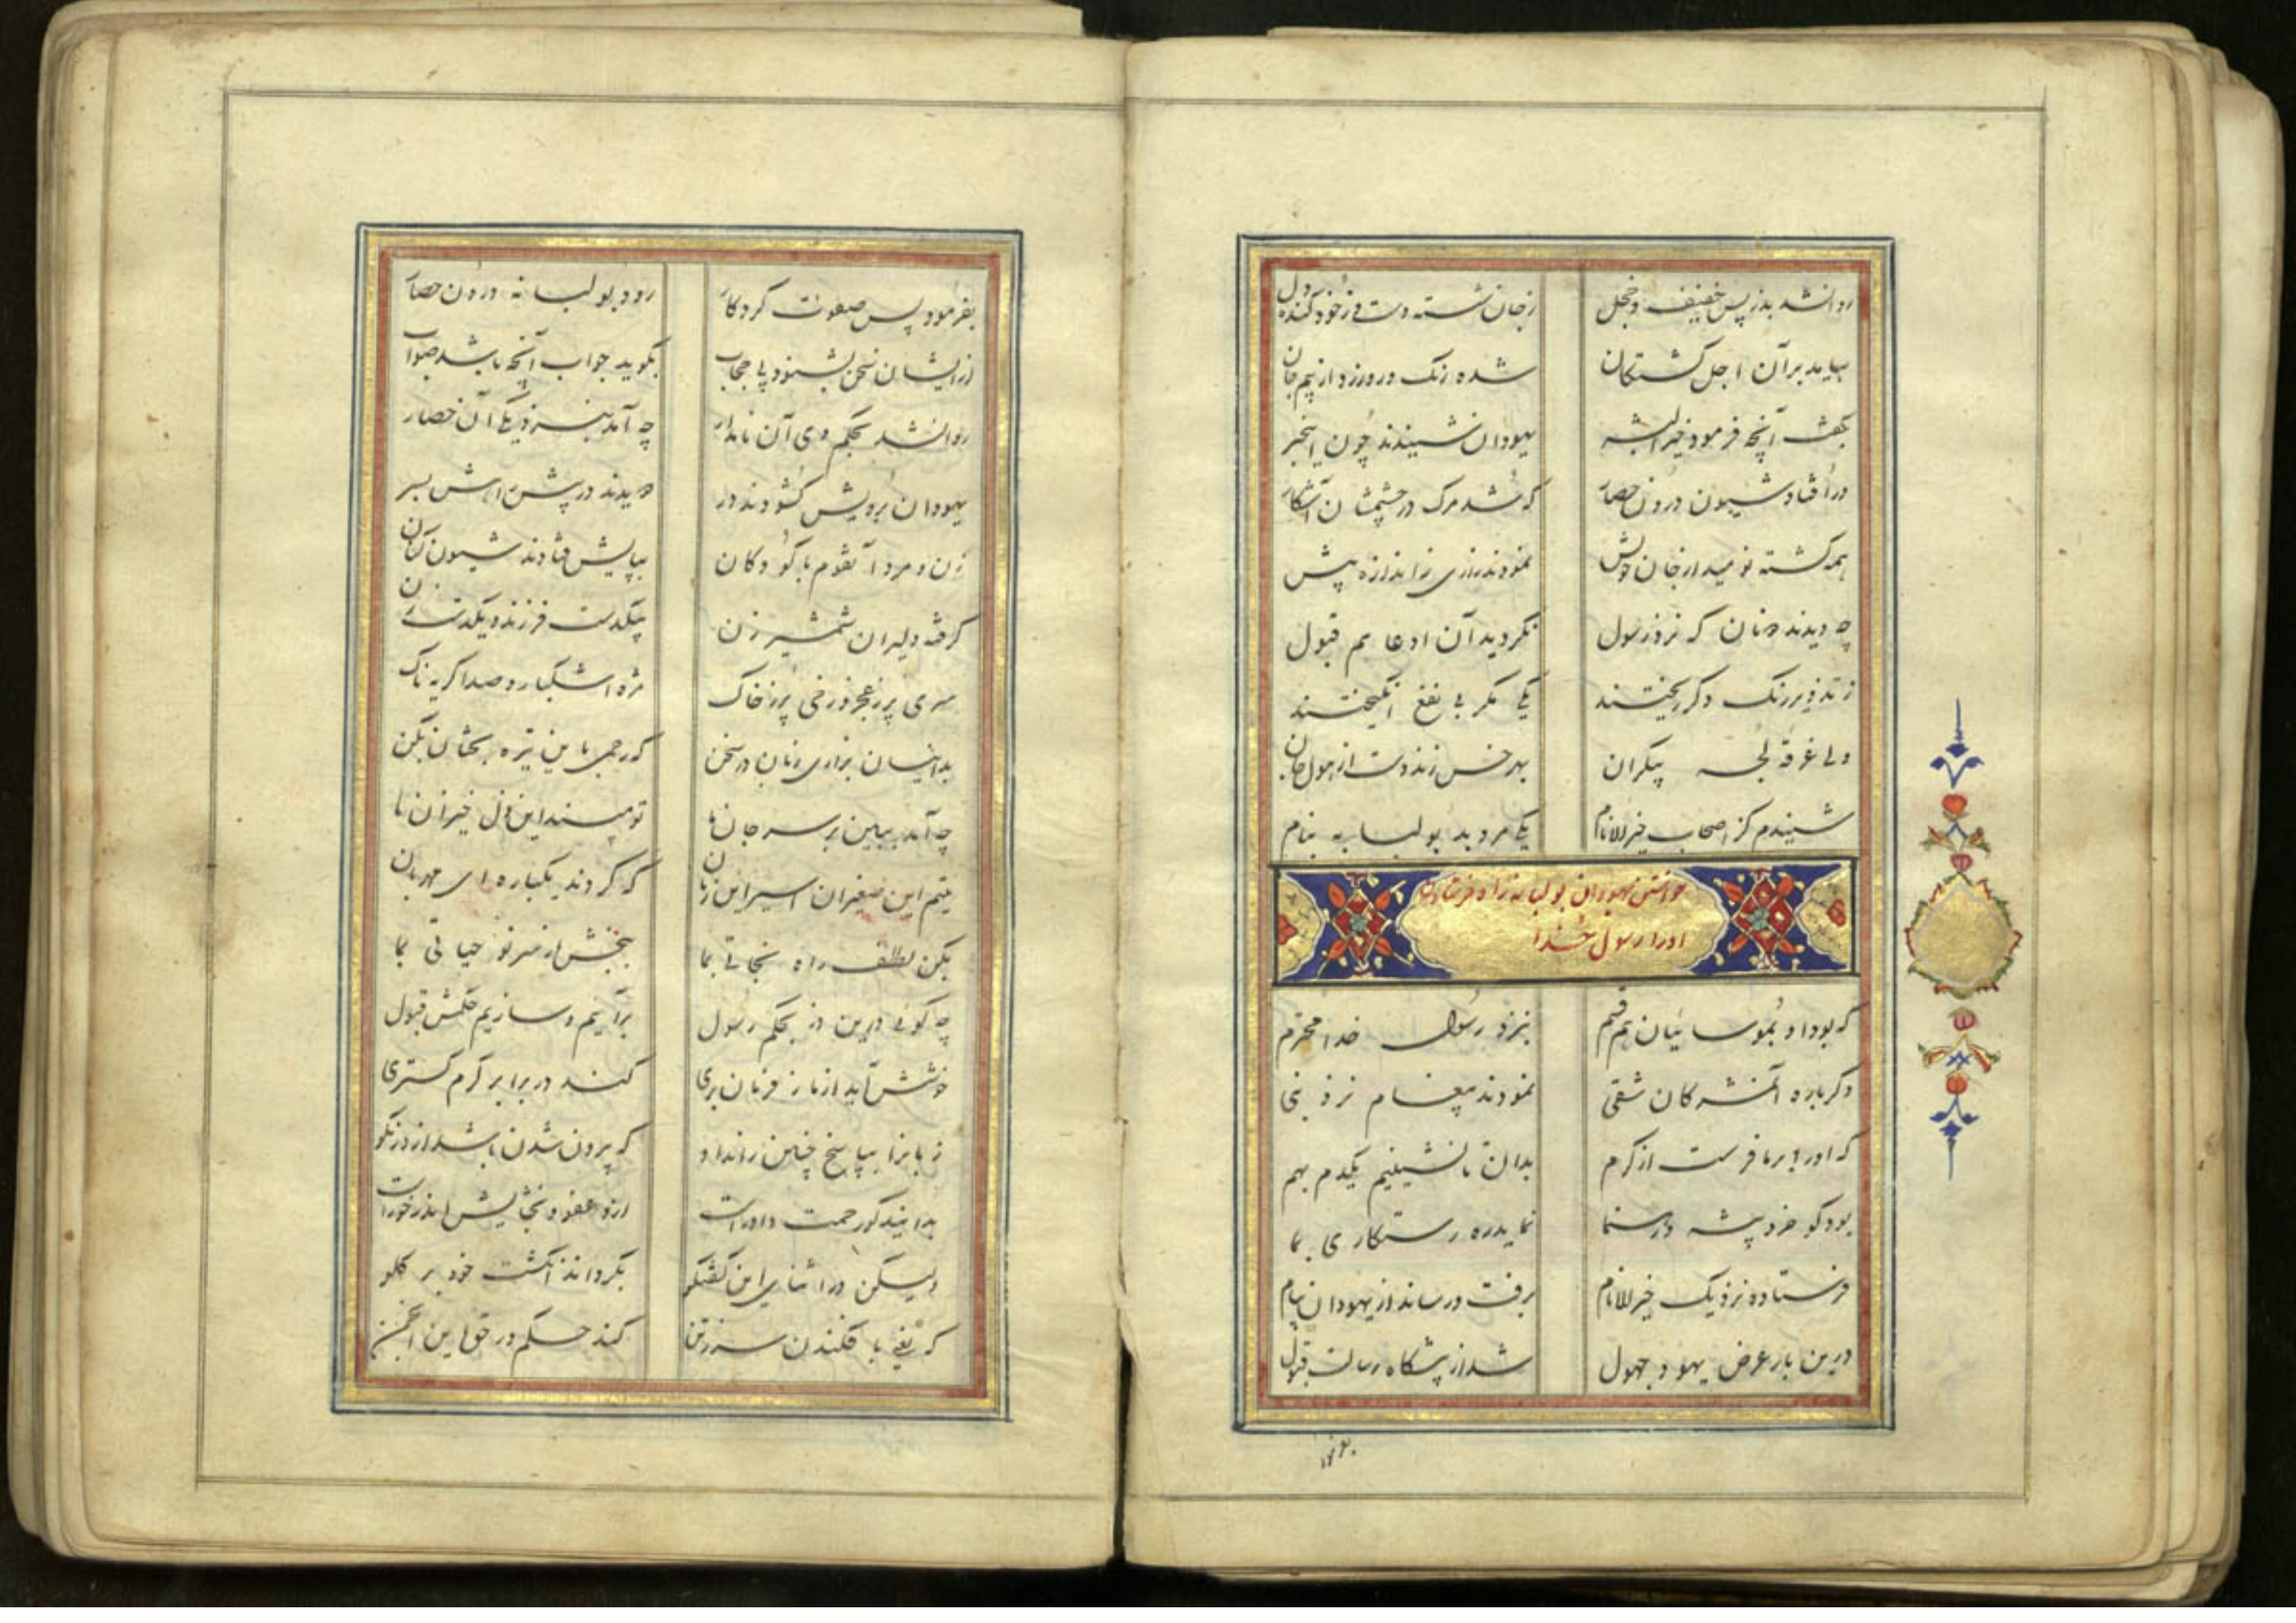 روانشد بدز پس خفیف و خجل
ز جان شسته دست و ز خود کنده دل
بیامد بر آن اجل گشتگان
شده رنگ در رو زرد از بیم جان
بگفت آنچه فرمود خیر البشر
یهودان شنیدند چون این خبر
در افتاد شیون درون حصار
که شد مرگ در چشمشان آشکار
همه گشته نومید از جان خویش
نمودند زاری ز اندازه پیش
چه دیدند ایشان که نزد رسول
نگردید آن ادعا هم قبول
ز تذویر رنگ دگر ریختند
یکی مکر بی نفع انگیختند
ولی غرقه لجه بیکران
بهر خس زند دست از هول جان
شنیدم کز اصحاب خیر الانام
یکی مرد بد بو لبابه بنام
خواستن یهودان بو لبابه را و فرستادن
اورا رسول خدا
که بود او بموسائیان هم قسم
بنزد رسول خدا محترم
دگرباره آن مشرکان شقی
نمودند پیغام نزد نبی
که او را بر ما فرست از کرم
بدان تا نشینیم یکدم بهم
بود کو خرد پیشه و رهنما
نماید ره رستگاری بما
فرستاده نزدیک خیر الانام
برفت و رساند از یهودان پیام
درین بار عرض یهود جهول
شد از پیشگاه رسالت قبول
بفرمود
بفرمود پس صفوت کردکار
رود بو لبابه درون حصار
از ایشان سخن بشنود بی حجاب
بگوید جواب آنچه باشد صواب
روانشد بحکم وی آن نامدار
چه آمد بنزدیکی آن حصار
یهودان برویش گشودند در
دویدند در پیش راهش بسر
زن و مرد آنقوم با کودکان
بپایش فتادند شیون کنان
گرفته دلیران شمشیر زن
بیکدست فرزند و یکدست زن
سری پر ز عجز و رخی پر ز خاک
مژه اشکبار و صدا گریه ناک
بدانیسان بزاری زنان در سخن
که رحمی باین تیره بختان بکن
چه آمد ببین بر سر جان ما
تو مپسند این ذل خیزان ما
یتیم این صغیران اسیر این زنان
که گردند یکباره ای مهربان
بکن لطف راه نجاتی بما
ببخش از سر نو حیاتی بما
چه گوئی درین دز بحکم رسول
برآئیم و سازیم حکمش قبول
خوشش آید از ما ز فرمان بری
کند در برابر کرم گستری
زبانرا بپاسخ چنین راند او
که بیرون شدن باشد از دز نکو
بدانید کو رحمت داور است
ازو عفو و بخشایش اندر خور است
ولیکن در اثنای این گفتگو
بگرداند انگشت خود بر گلو
که یعنی با فکندن سر ز تن
کند حکم در حق این انجمن